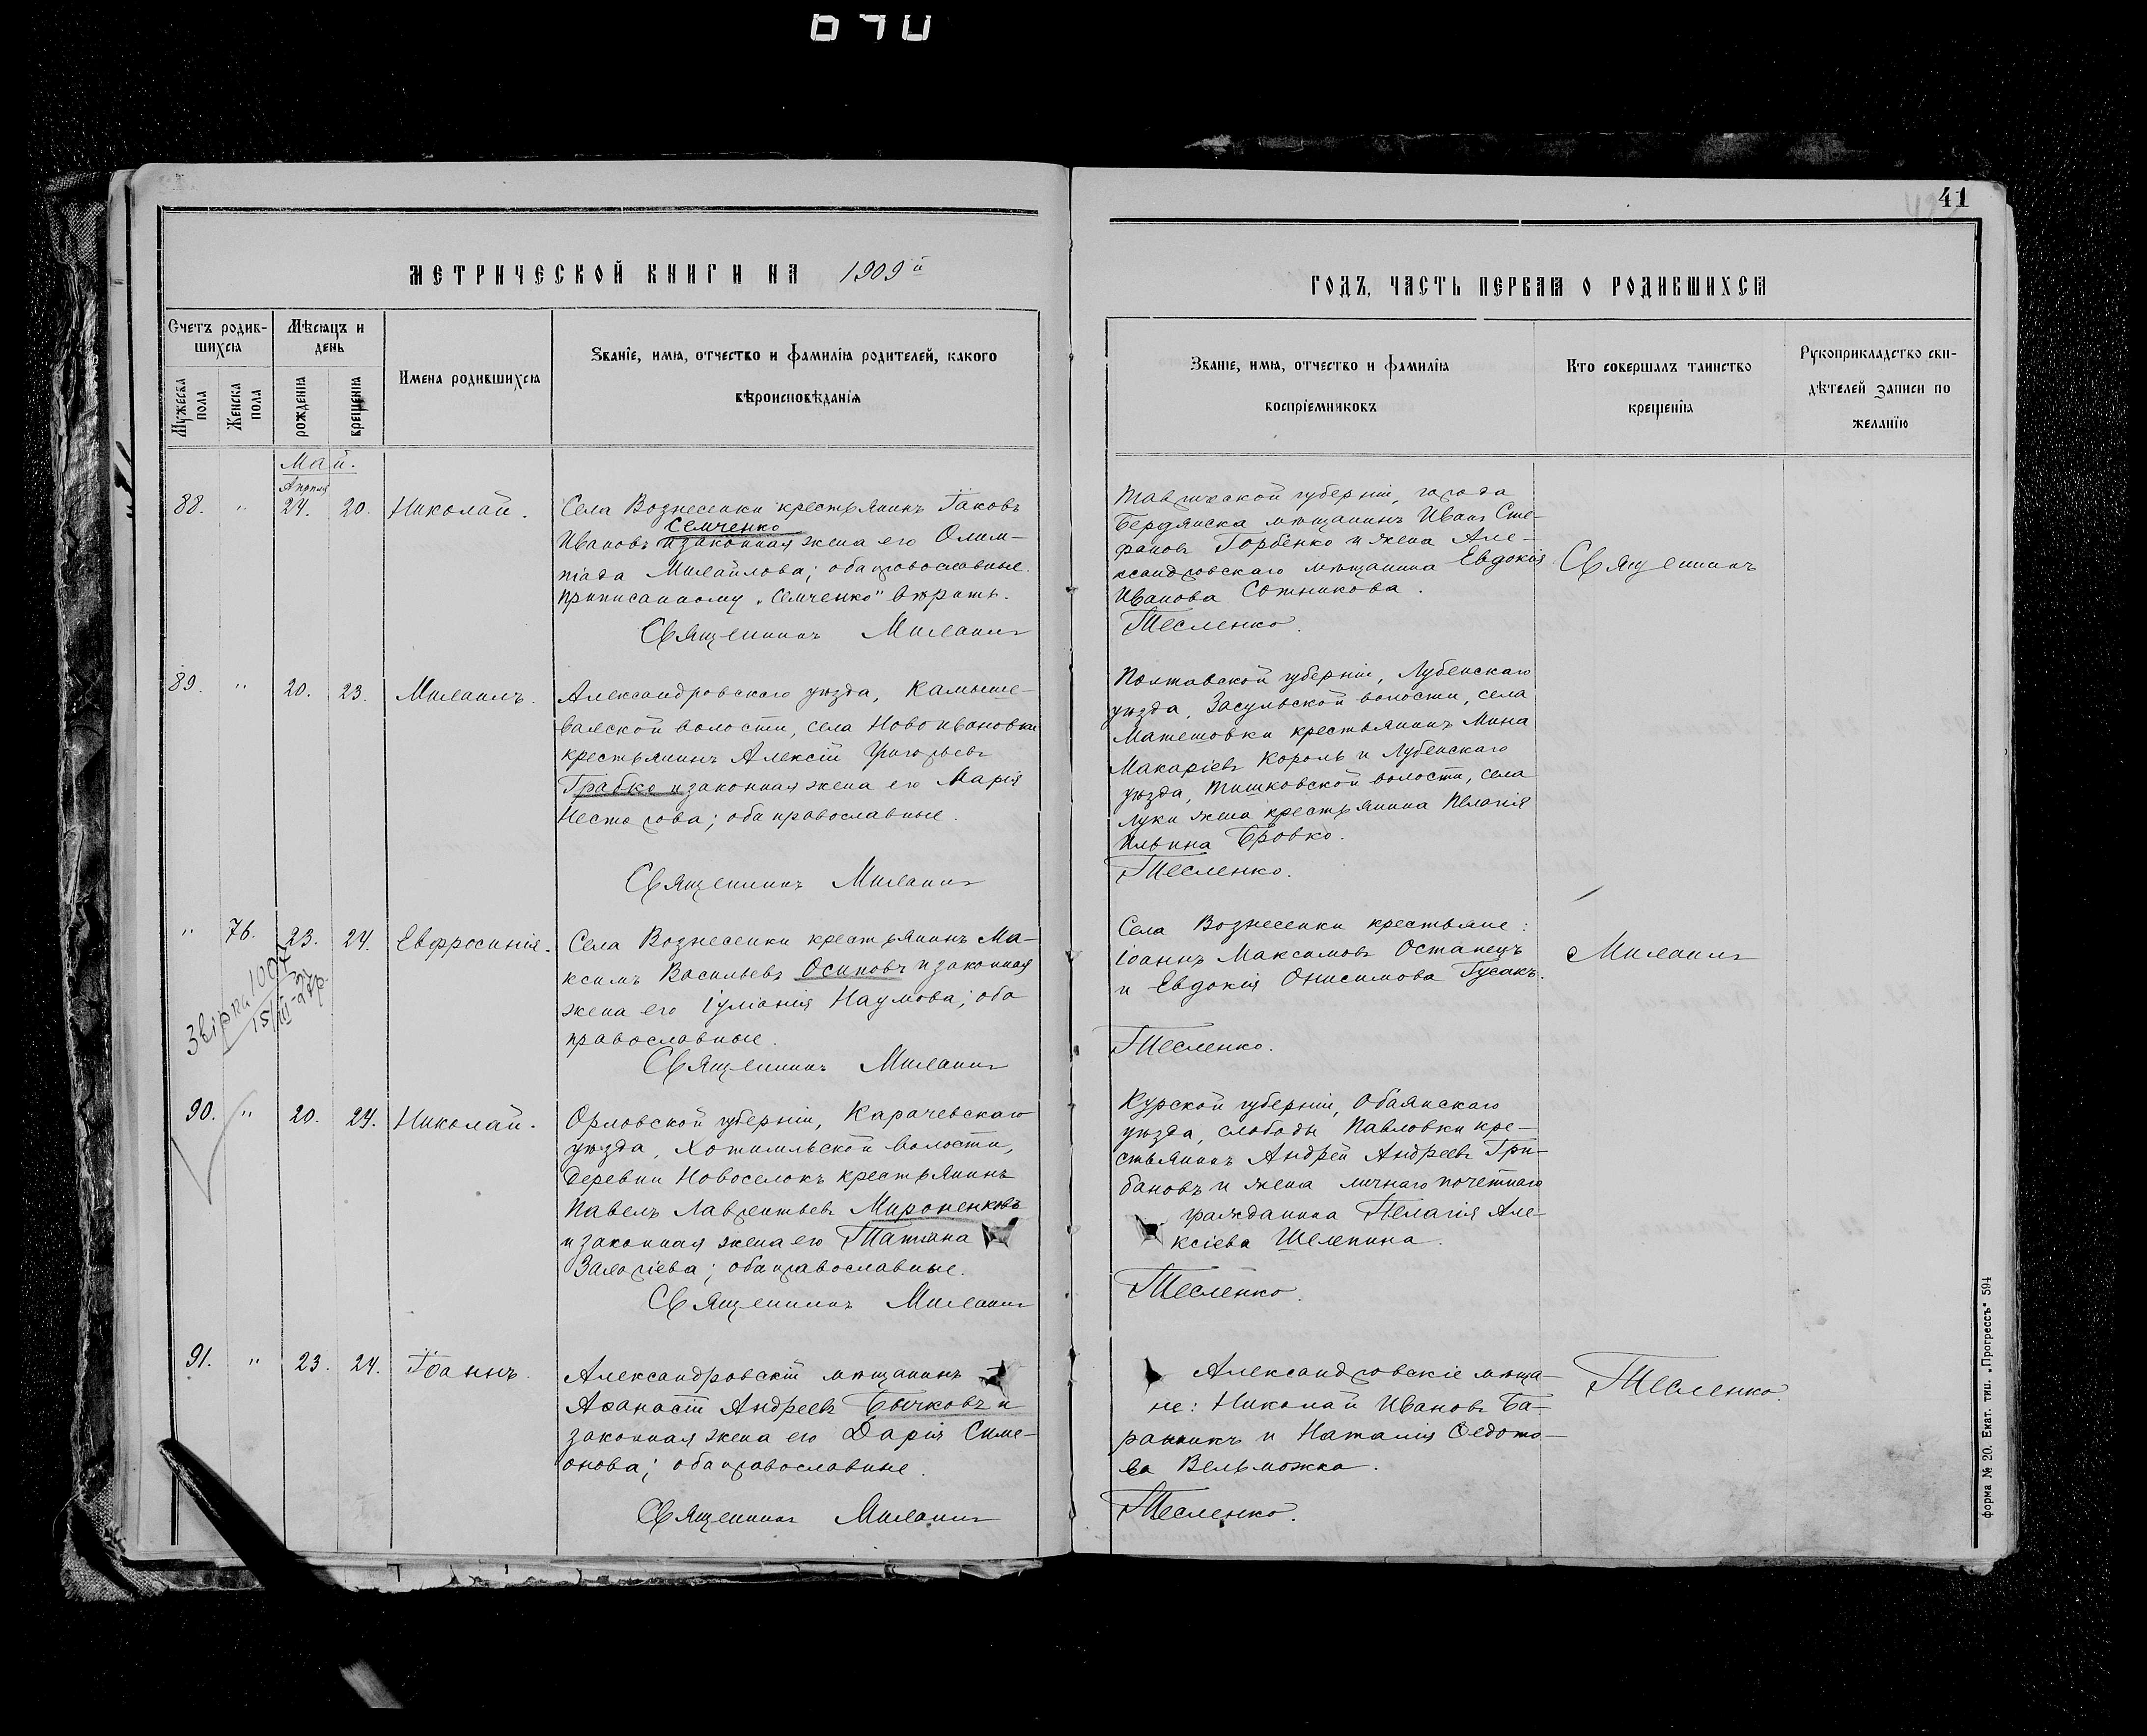 41
МЕТРИЧЕСКОЙ КНИГИ НА 1909й
ГОДЪ, ЧАСТЬ ПЕРВАЯ О РОДИВШИХСЯ
Счетъ родив-
шихся
Мѣсяцъ и
день
Мужеска пола
Женска пола
рожденія
крещенія
Имена родившихся
Званіе, имя, отчество и фамилія родителей, какого
вѣроисповѣданія
Званіе, имя, отчество и фамилія
воспріемниковъ
Кто совершалъ таинство
крещенія
Рукоприкладство сви-
дѣтелей записи по
желанію
Май.
Апрѣля
88. " 24. 20. Николай.
Села Вознесенки крестьянинъ Іаковъ
Семченко
Ивановъ и законная жена его Олим-
піада Михайлова; оба православные.
Приписанному „Семченко" вѣрить.
Священникъ Михаилъ
Таврической губерніи, города
Бердянска мѣщанинъ Иванъ Сте-
фановъ Горбенко и жена Але-
ксандровскаго мѣщанина Евдокія
Иванова Сотникова.
Тесленко.
Священникъ
89. " 20. 23. Михаилъ.
Александровскаго уѣзда, Камыше-
вахской волости, села Новоивановки
крестьянинъ Алексій Григорьевъ
Грабко и законная жена его Марія
Нестерова; оба православные.
Священникъ Михаилъ
Полтавской губерніи, Лубенскаго
уѣзда, Засульской волости, села
Матешовки крестьянинъ Мина
Макаріевъ Король и Лубенскаго
уѣзда, Тишковской волости, села
Луки жена крестьянина Пелагія
Ильина Бровко.
Тесленко.
" 76. 23. 24. Евфросинія.
Села Вознесенки крестьянинъ Ма-
ксимъ Васильевъ Осиповъ и законная
жена его Іуліанія Наумова; оба
православные.
Священникъ Михаилъ
Села Вознесенки крестьяне:
Іоаннъ Максимовъ Останецъ
и Евдокія Онисимова Гусакъ.
Тесленко.
Михаилъ
90. " 20. 24. Николай.
Орловской губерніи, Карачевскаго
уѣзда, Хотимльской волости,
деревни Новоселокъ крестьянинъ
Павелъ Лаврентьевъ Мироненковъ
и законная жена его Татіана
оба православные.
Священникъ Михаилъ
Курской губерніи, Обоянскаго
уѣзда, слободы Павловки кре-
стьянинъ Андрей Андреевъ Гри-
бановъ и жена личнаго почетнаго
гражданина Пелагія Але-
ксіева Шелепина.
Тесленко.
91. " 23. 24. Іоаннъ.
Александровскій мѣщанинъ
Аѳанасій Андреевъ Бычковъ и
законная жена его Дарія Симе-
онова; оба православные.
Священникъ Михаилъ
Александровскіе мѣща-
не: Николай Ивановъ Ба-
ранникъ и Наталія Ѳедото-
ва Вельможка.
Тесленко.
Тесленко.
форма № 20. Екат. тип. „Прогрессъ" 594